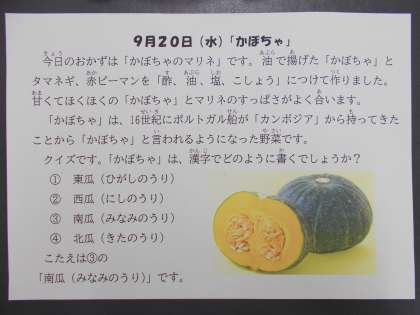 9月20日（水）「かぼちゃ」
今日のおかずは「かぼちゃのマリネ」です。油で揚げた「かぼちゃ」と
タマネギ、赤ピーマンを「酢、油、塩、こしょう」につけて作りました。
甘くてほくほくの「かぼちゃ」とマリネのすっぱさがよく合います。
「かぼちゃ」は、16世紀にポルトガル船が「カンボジア」から持ってきた
ことから「かぼちゃ」と言われるようになった野菜です。
クイズです。「かぼちゃ」は、漢字でどのように書くでしょうか？
① 東瓜（ひがしのうり）
② 西瓜（にしのうり）
③ 南瓜（みなみのうり）
④ 北瓜（きたのうり）
こたえは③の
「南瓜（みなみのうり）」です。